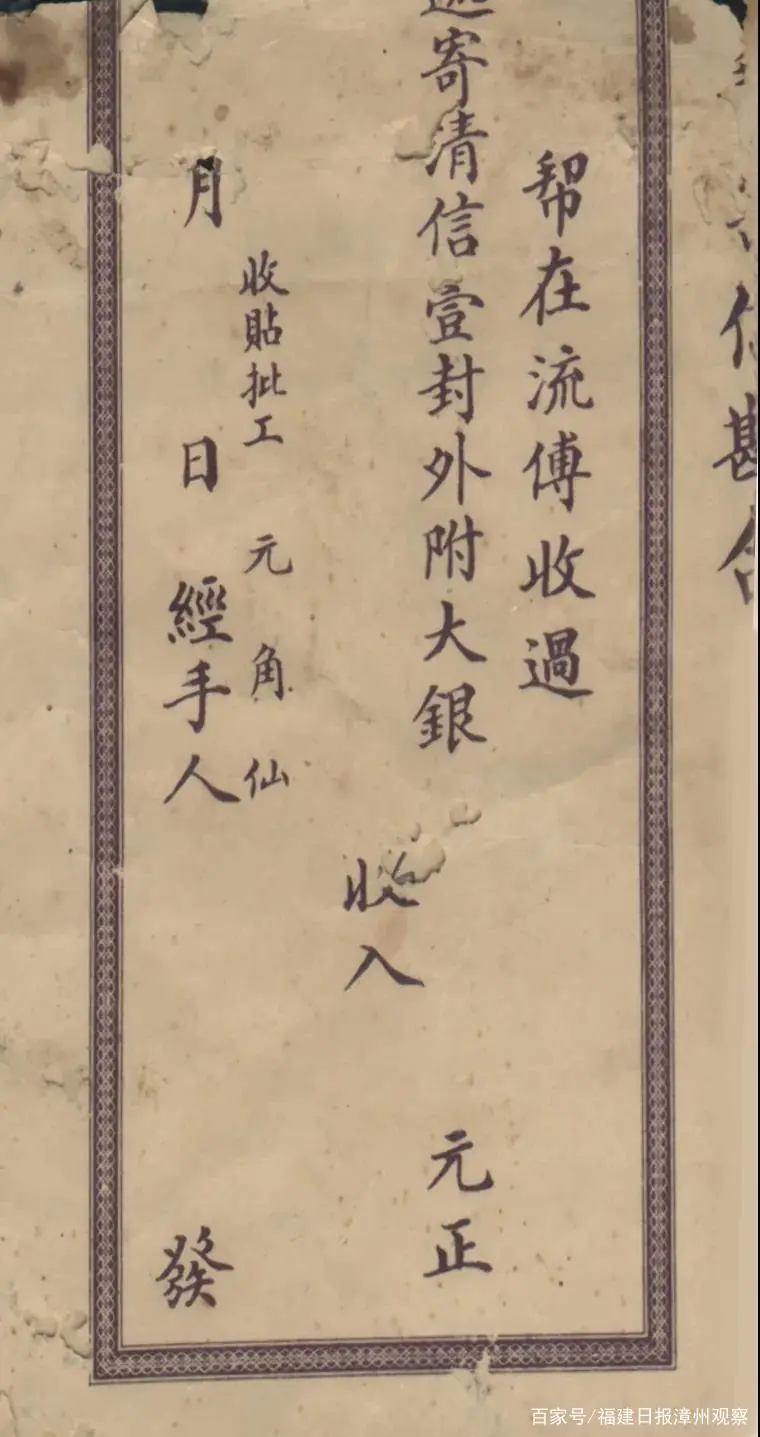 幇在流傅收過
寄清信壹封外附大銀 元正
收入
收貼批工 元角仙
月 日 經手人 發
百家号/福建日报漳州观察